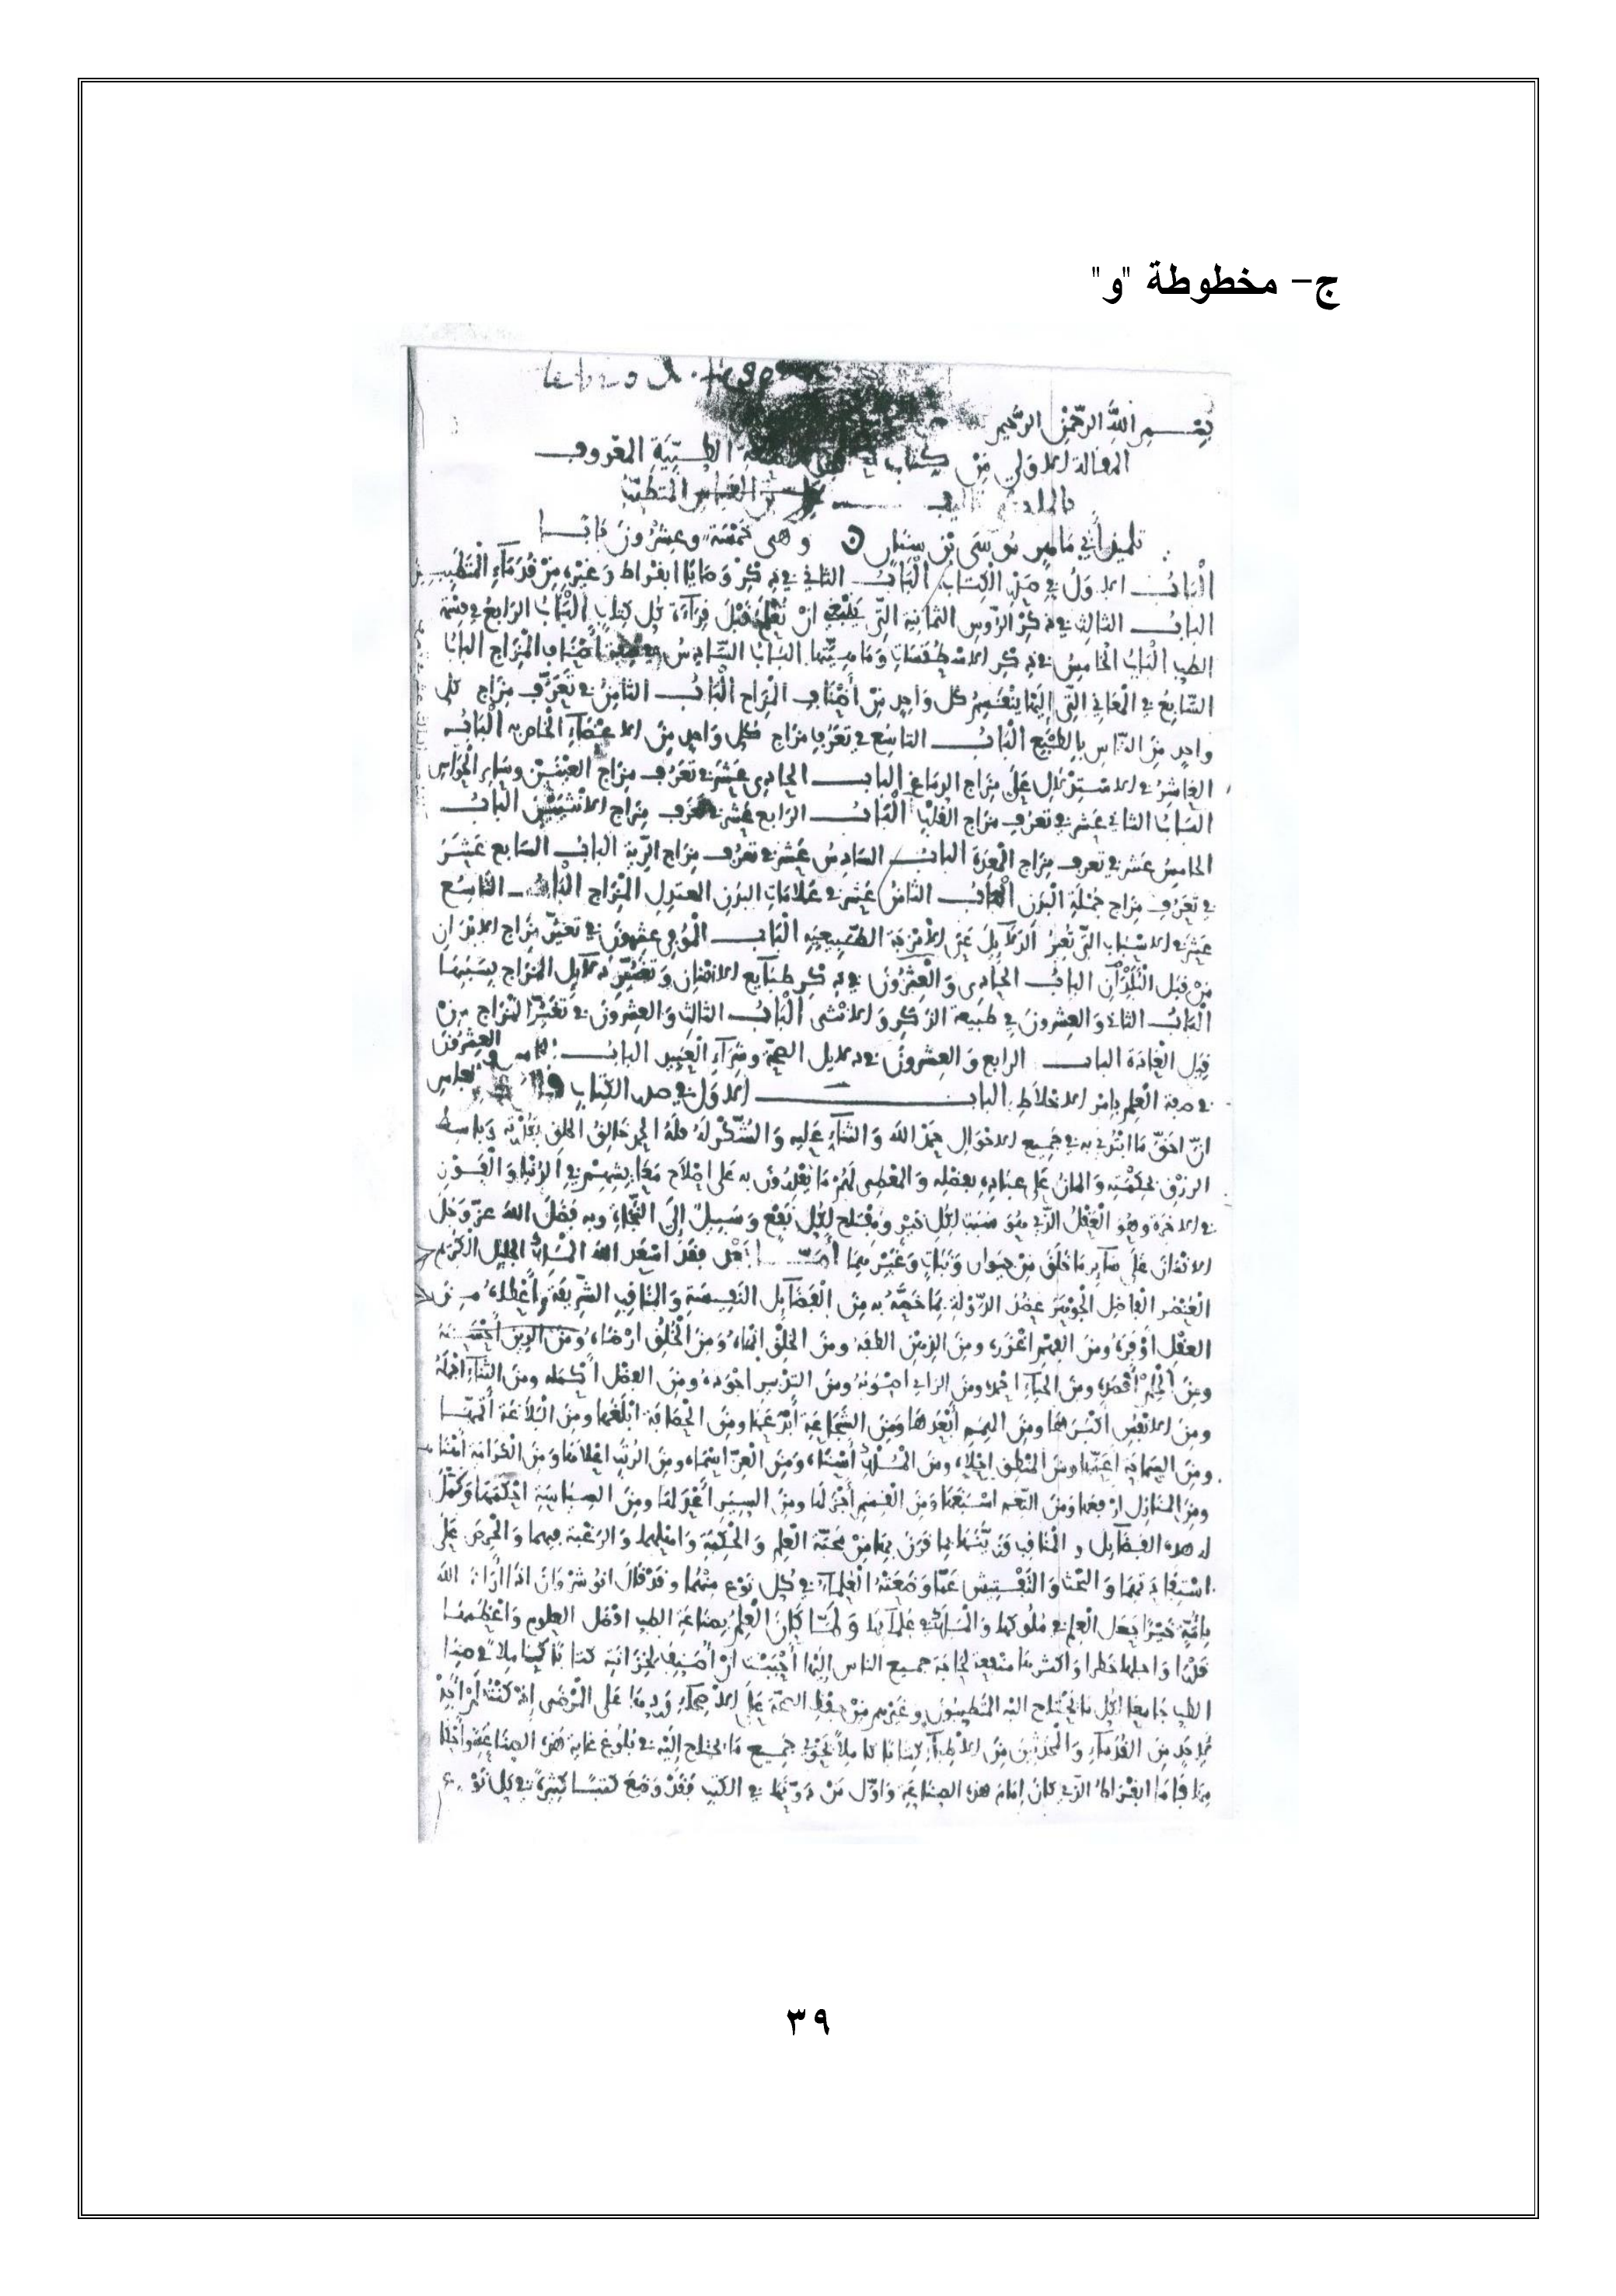 ج- مخطوطة "و"
بسم الله الرحمن الرحيم
المقالة الاولى من كتاب الطبية المعروف
بن العباس المتطبب
تلميذ أبي ماهر موسى بن سيار وهي خمسة وعشرون بابا
الباب الاول في صدر الكتاب الباب الثاني في ذكر وصايا ابقراط وغيره من قدماء المتطببين
الباب الثالث في ذكر الروس الثمانية التي ينبغي ان تعلم قبل قراءة كل كتاب الباب الرابع في قسمة
الطب الباب الخامس في ذكر الاسطقسات وماهيتها الباب السادس في أصناف المزاج الباب
السابع في المعاني التي إليها ينقسم كل واحد من أصناف المزاج الباب الثامن في تعرف مزاج كل
واحد من الناس بالطبع الباب التاسع في تعرف مزاج كل واحد من الاعضاء الخاص به الباب
العاشر في الاستدلال على مزاج الدماغ الباب الحادي عشر في تعرف مزاج العينين وساير الحواس
الباب الثاني عشر في تعرف مزاج القلب الباب الرابع عشر في تعرف مزاج الانثيين الباب
الخامس عشر في تعرف مزاج المعدة الباب السادس عشر في تعرف مزاج الرية الباب السابع عشر
في تعرف مزاج جملة البدن الباب الثامن عشر في علامات البدن المعتدل المزاج الباب التاسع
عشر في الاسباب التي تغير الدلايل عن الامزجة الطبيعية الباب الموفي عشرون في تغير مزاج الابدان
من قبل البلدان الباب الحادي والعشرون في ذكر طبايع الاسنان وتغير دلايل المزاج بسببها
الباب الثاني والعشرون في طبيعة الذكر والانثى الباب الثالث والعشرون في تغير المزاج من
قبل العادة الباب الرابع والعشرون في دلايل الصحة وشراء العبيد الباب الخامس والعشرون
في صفة العلم بامر الاخلاط الباب الاول في صدر الكتاب
ان احق ما ابتدئ به في جميع الاحوال حمد الله والثناء عليه والشكر له فله الحمد خالق الخلق بقدرته وباسط
الرزق بحكمته والمان على عباده بفضله والمعطي لهم ما يقدرون به على اصلاح معايشهم في الدنيا والفوز
في الاخرة وهو العقل الذي هو سبب لكل خير ومفتاح لكل نفع وسبيل إلى النجاة وبه فضل الله عز وجل
الانسان على ساير ما خلق من حيوان ونبات وغيرهما أما بعد فقد اسعد الله الملك الجليل الكريم
العنصر الفاضل الجوهر عضد الدولة بما خصه به من الفضايل النفيسة والمناقب الشريفة وأعطاه من
العقل أوفره ومن الفهم اغزره ومن الذهن الطفه ومن الخلق اتمه ومن الخلق ارضاه ومن الدين أحسنه
ومن الحياء احمده ومن الراي اصوبه ومن التدبير اجوده ومن الفضل أكمله ومن الثناء اجمله
ومن الانفس اكبرها ومن الهمم أبعدها ومن الشجاعة أبرعها ومن الحصافة ابلغها ومن البلاغة أتمها
ومن السماحة اعمها ومن المنطق اجلاه ومن الملك أسناه ومن العز اسماه ومن الرتب اعلاها ومن الكرامة اهناها
ومن المنازل ارفعها ومن النعم اسبغها ومن القسم أجزلها ومن السير أعدلها ومن السياسة احكمها وكمل
له هذه الفضايل والمناقب وزينها بما قرن بها من محبة العلم والحكمة واهلهما والرغبة فيهما والحرص على
استفادتهما والبحث والتفتيش عما وضعته العلماء في كل نوع منهما وقد قال انوشروان اذا أراد الله
بامة خيرا جعل العلم في ملوكها والملك في علمائها ولما كان العلم بصناعة الطب افضل العلوم واعظمها
قدرا واجلها خطرا واكثرها منفعة لحاجة جميع الناس إليها أحببت أن أصنف لخزانته كتابا كاملا في صناعة
الطب جامعا لكل ما يحتاج اليه المتطببون وغيرهم من حفظ الصحة على الاصحاء وردها على المرضى إذ كنت لم أجد
لاحد من القدماء والمحدثين من الاطباء كتابا كاملا يحوي جميع ما يحتاج إليه في بلوغ غاية هذه الصناعة
فاما ابقراط الذي كان إمام هذه الصناعة واول من دونها في الكتب فقد وضع كتبا كثيرة في كل نوع
٣٩